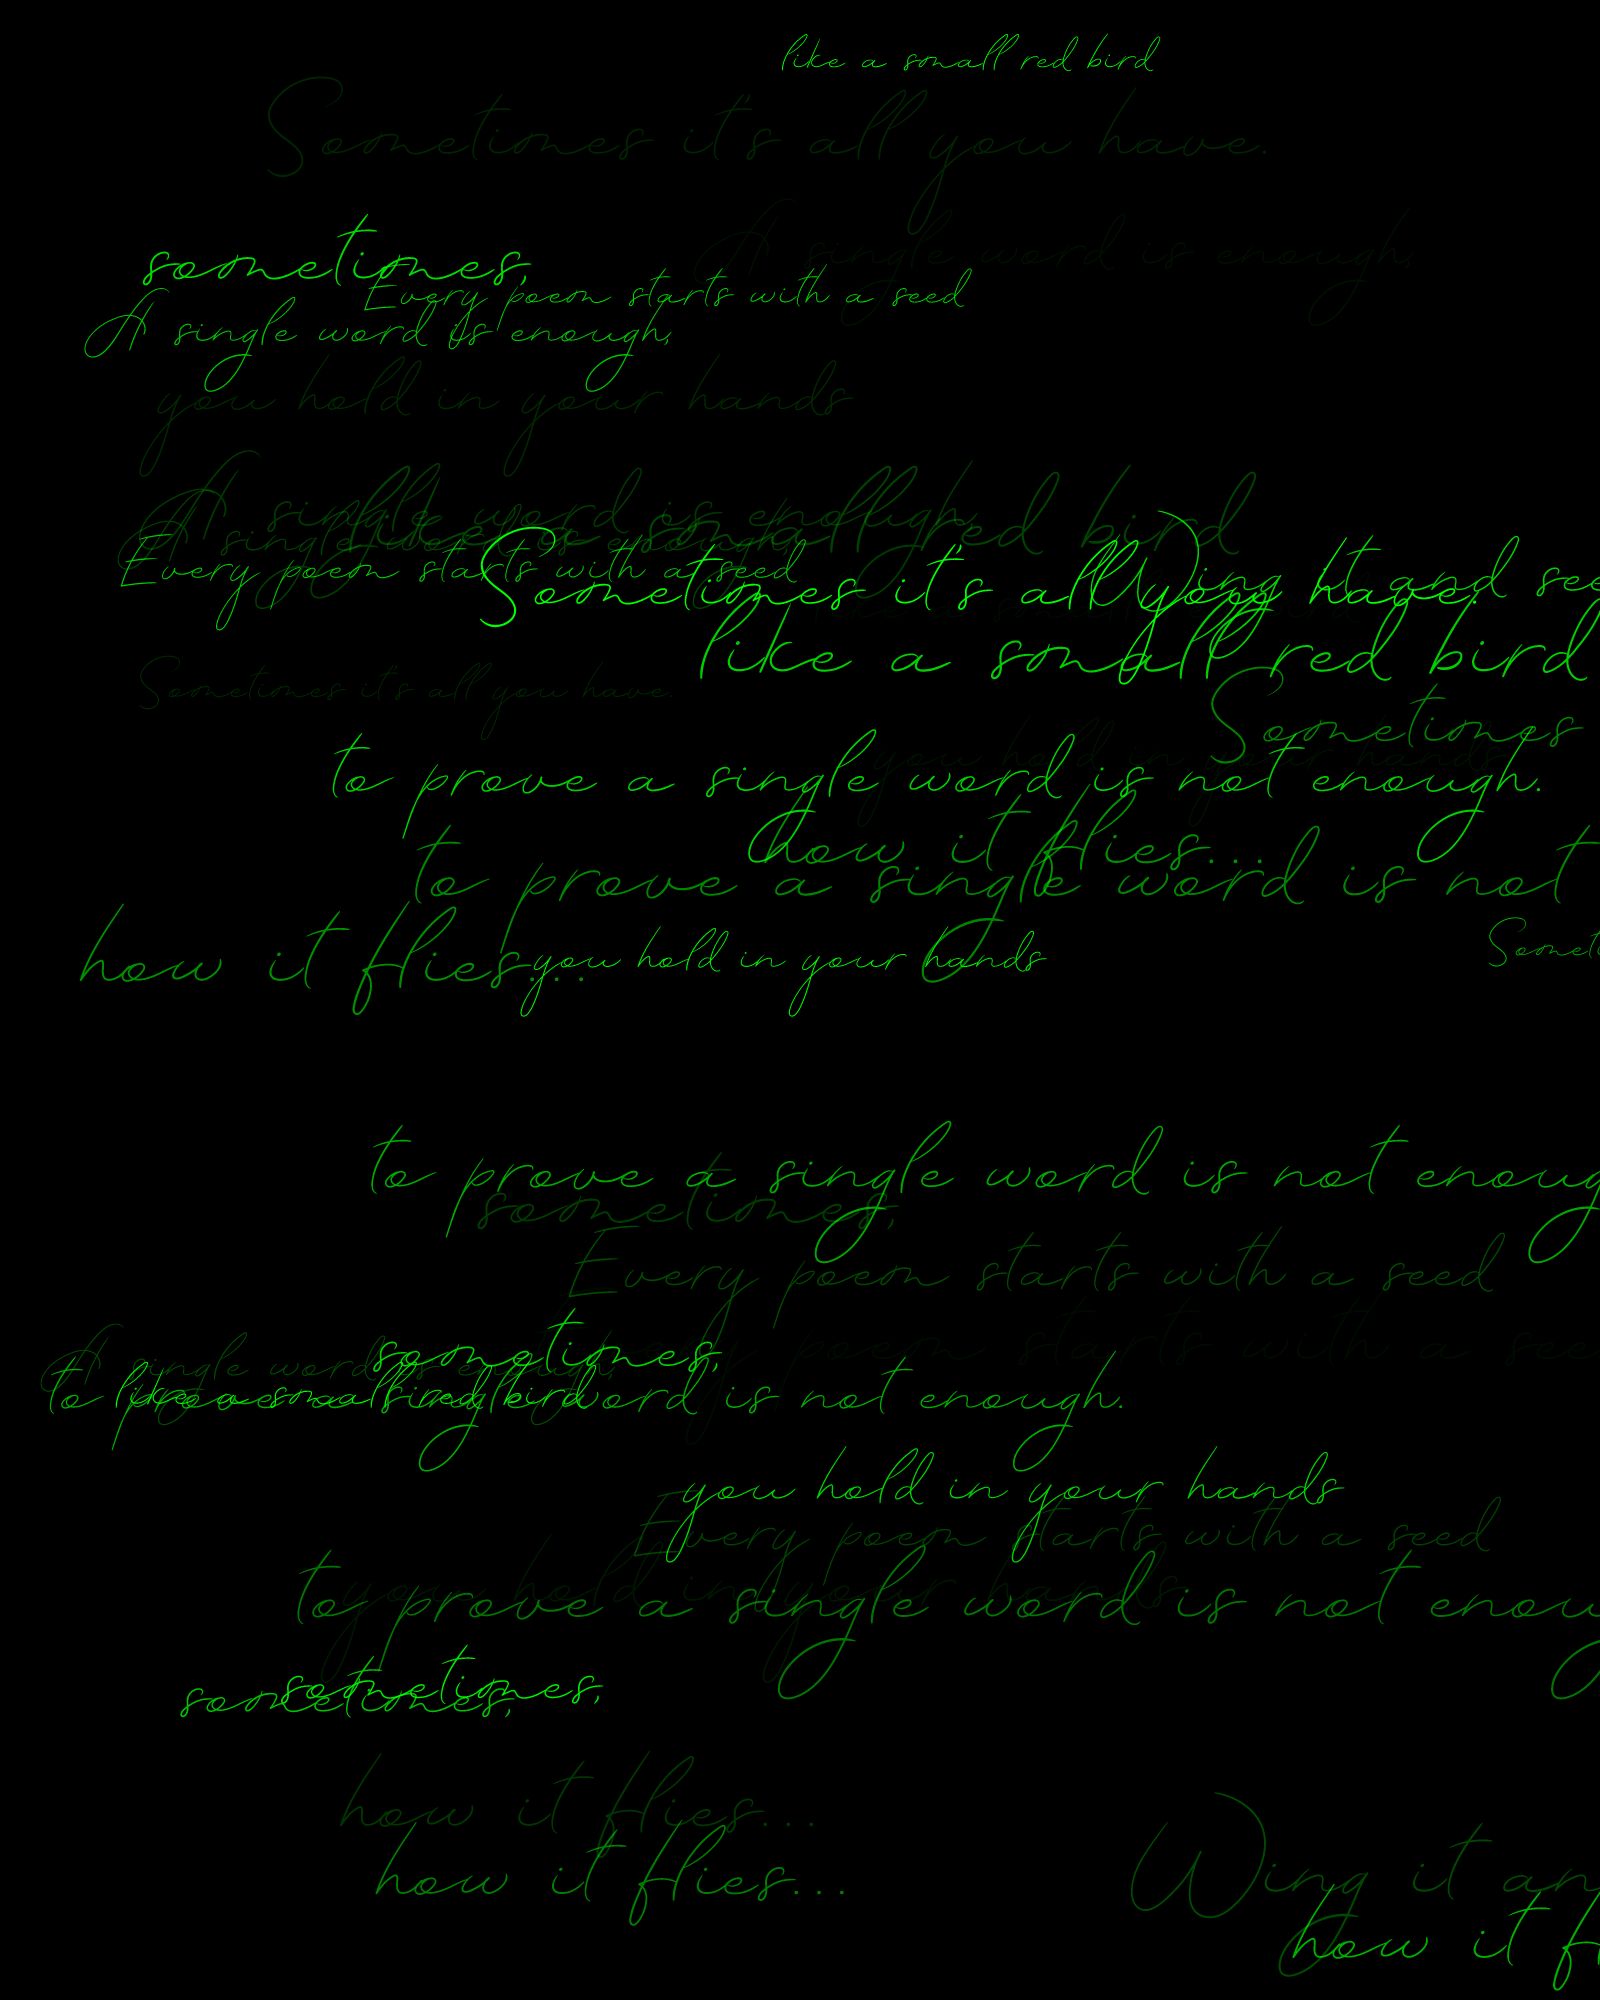 like a small red bird
Sometimes it's all you have.
A single word is enough,
sometimes,
Every poem starts with a seed
A single word is enough,
you hold in your hands
A single word is enough,
like a small red bird
A single word is enough,
Every poem starts with a seed
Sometimes it's all you have.
Wing it and see
like a small red bird
Sometimes it's all you have.
Sometimes
you hold in your hands
to prove a single word is not enough.
how it flies...
to prove a single word is not
how it flies...
you hold in your hands
Someti
to prove a single word is not enoug
sometimes,
Every poem starts with a seed
poem starts with a see
sometimes,
A single word is enough,
to prove a single word is not enough.
like a small red bird
you hold in your hands
Every poem starts with a seed
you hold in your hands
to prove a single word is not enou
sometimes,
sometimes,
how it flies...
how it flies...
Wing it an
how it f